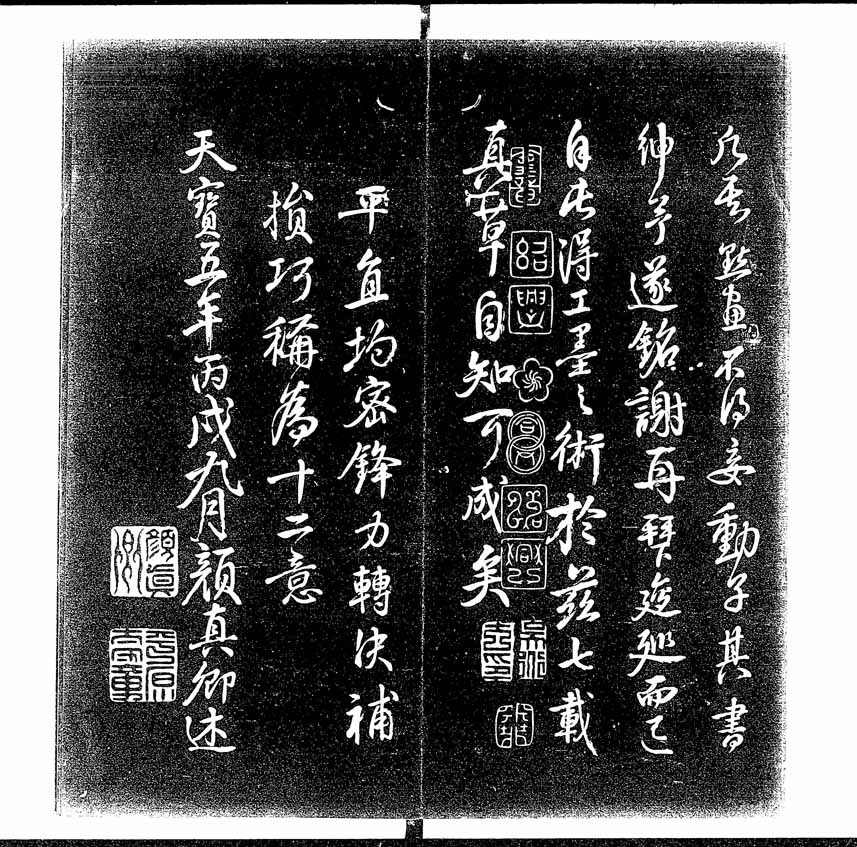 點畫不得妄動子其書
紳予遂銘謝再拜逡巡而已
自此得工墨之術於茲七載
真草自知可成矣
紹興
紹興
平直均密鋒力轉決補
損巧稱為十二意
天寶五年丙戌九月顏真卿述
顏真卿